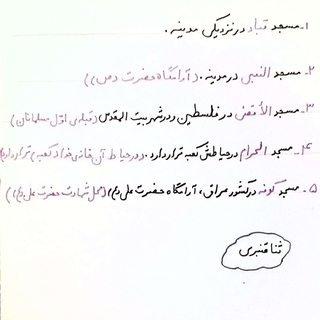 ۱- مسجد قباد در نزدیکی مدینه.
۲- مسجد النبی در مدینه. (آرامگاه حضرت (ص))
۳- مسجد الأقصی در فلسطین و در شهر بیت المقدس (قبله‌ی اول مسلمانان)
۴- مسجد الحرام در حیاطش کعبه قرار دارد. (در حیاط آن خانه‌ی خدا (کعبه) قرار دارد)
۵- مسجد کوفه در کشور عراق، آرامگاه حضرت علی (ع) (محل شهادت حضرت علی (ع))
ثنا قنبری